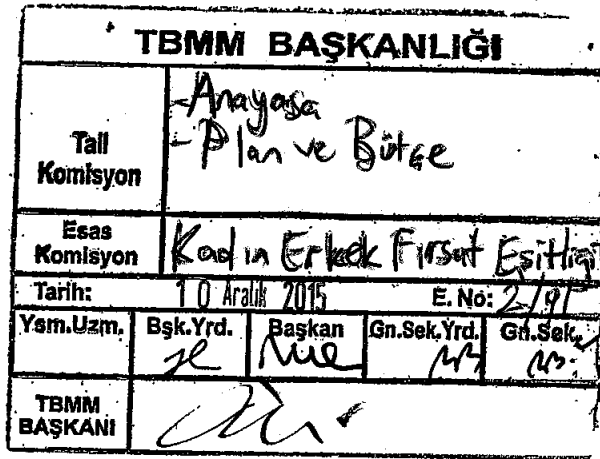 TBMM BAŞKANLIĞI
Tali Komisyon
- Anayasa
- Plan ve Bütçe
Esas Komisyon
Kadın Erkek Fırsat Eşitliği
Tarih: 10 Aralık 2015 E. No: 2/
Ysm.Uzm. Bşk.Yrd. Başkan Gn.Sek.Yrd. Gn.Sek.
TBMM BAŞKANI